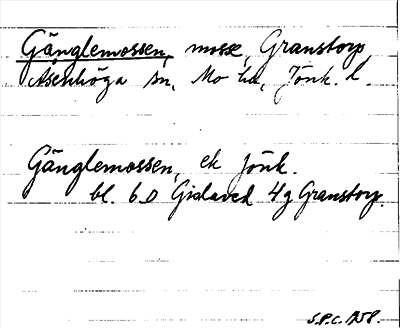 Gånglemossen, mosse, Granstorp
Åsenhöga sn, Mo hd, Jönk. l.
Gånglemossen, ek Jönk.
bl. 6D Gislaved 4g Granstorp.
S.P.C.